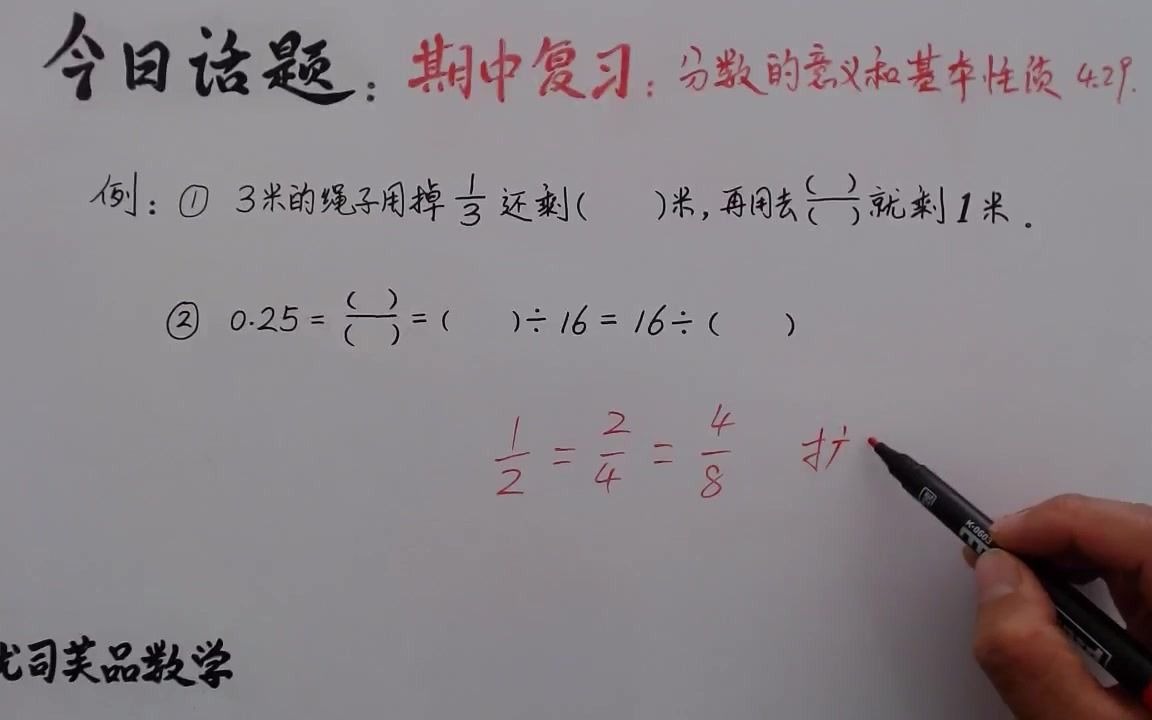 今日话题：期中复习：分数的意义和基本性质 4.29.
例：① 3米的绳子用掉 1/3 还剩(  )米，再用去 ( )/( ) 就剩1米．
② 0.25 = ( )/( ) = (  )÷16 = 16÷(  )
1/2 = 2/4 = 4/8 扩
司芙品数学
K-0603